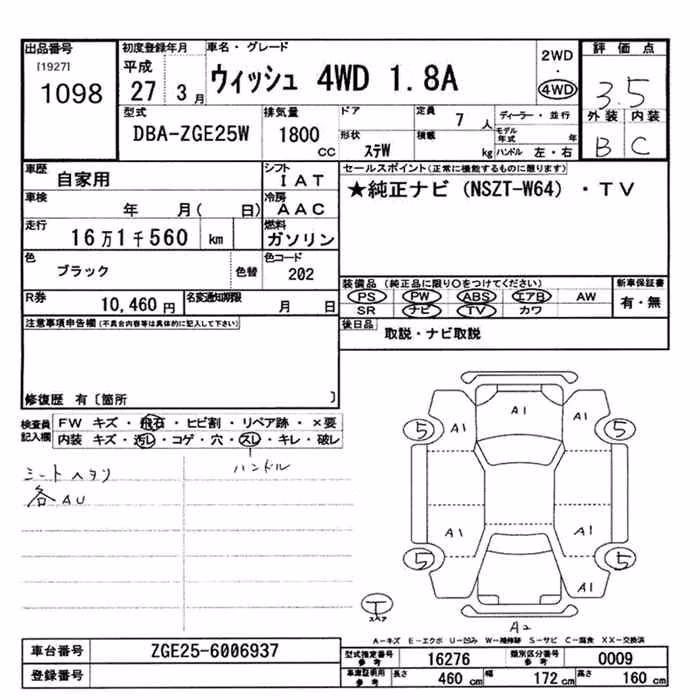 出品番号
[1927]
1098
初度登録年月
平成
27 3月
車名・グレード
ウィッシュ 4WD 1.8A
2WD
・
4WD
評価点
3.5
外装 内装
B C
型式
DBA-ZGE25W
排気量
1800
cc
ドア
形状
ステW
定員
7 人
積載
kg
ディーラー・並行
モデル年式 年
ハンドル 左・右
車歴
自家用
シフト
IAT
車検
年 月( 日)
冷房
AAC
走行
16万1千560 km
燃料
ガソリン
色
ブラック
色替
色コード
202
R券
10,460 円
名変通知期限
月 日
セールスポイント(正常に機能するものに限ります)
★純正ナビ(NSZT-W64)・TV
装備品(純正品に限り○をつけてください)
PS PW ABS エアB AW
SR ナビ TV カワ
新車保証書
有・無
後日品
取説・ナビ取説
注意事項申告欄(不具合内容等は具体的に記入して下さい)
修復歴 有〔箇所 〕
検査員記入欄
FW キズ・飛石・ヒビ割・リペア跡・×要
内装 キズ・汚レ・コゲ・穴・スレ・キレ・破レ
ハンドル
シートヘタリ
各AU
A1
5 A1 A1 5
A1 A1
5 5
A1
T
スペア
A2
A-キズ E-エクボ U-凹み W-補修跡 S-サビ C-腐食 XX-交換済
車台番号
ZGE25-6006937
登録番号
型式指定番号
参考
16276
類別区分番号
参考
0009
車庫証明用
参考
長さ
460 cm
幅
172 cm
高さ
160 cm